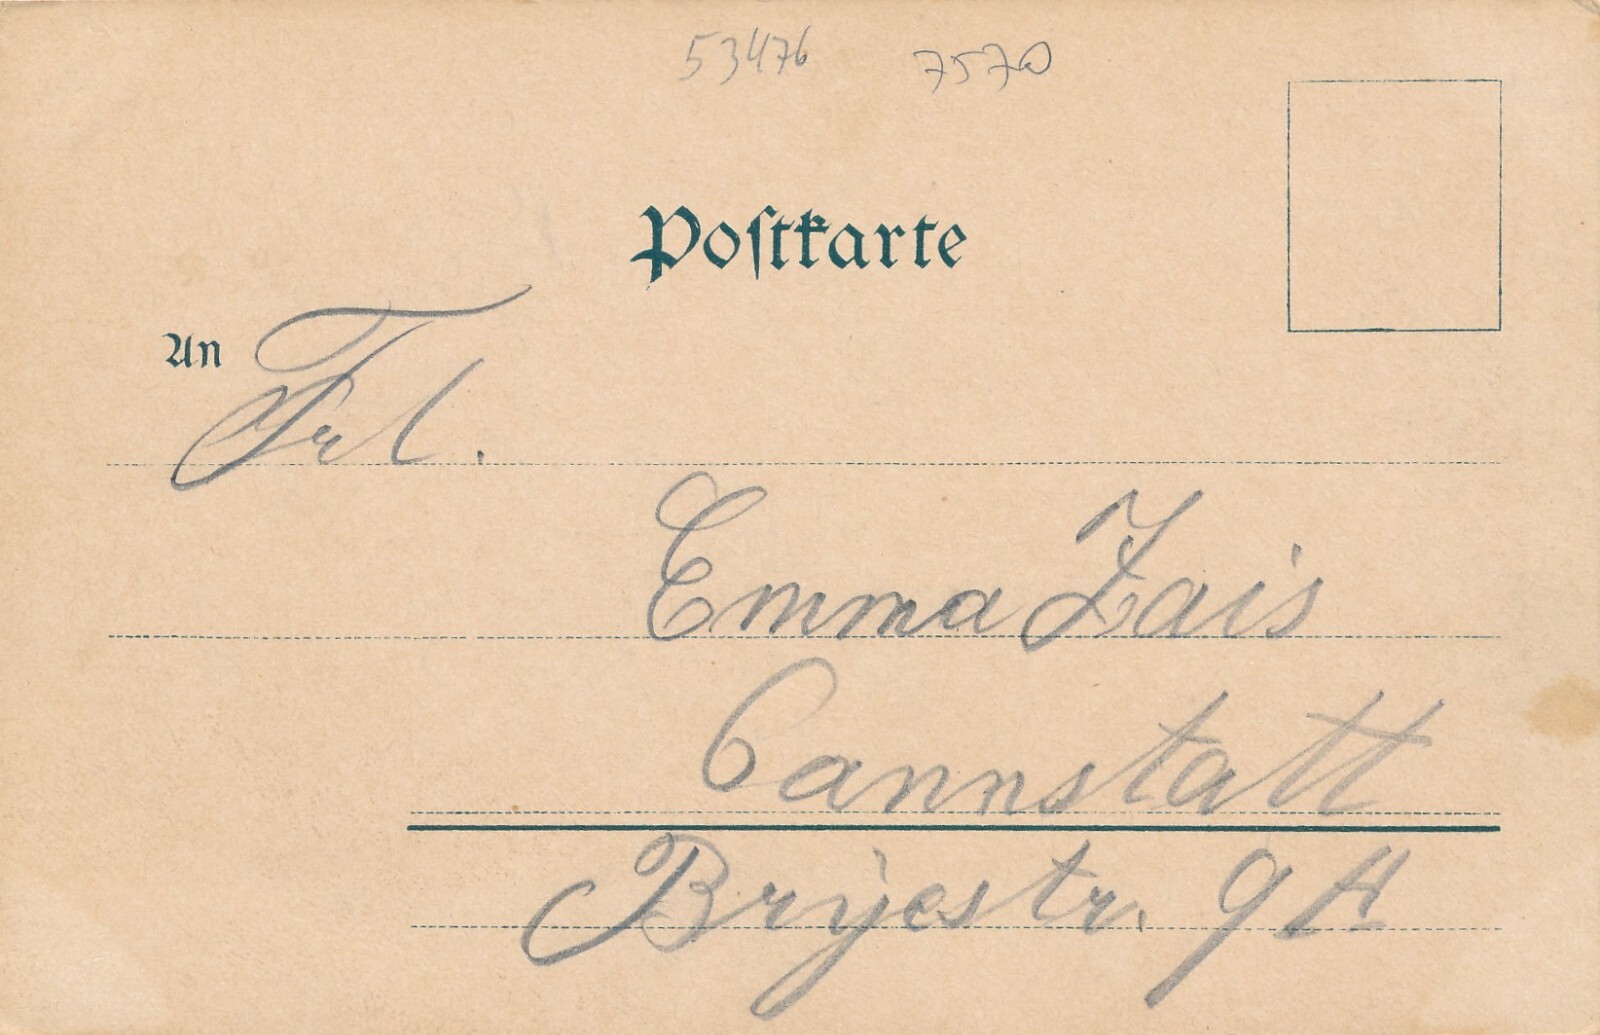 53476 7570
Postkarte
An Frl.
Emma Zais
Cannstatt
Bryestr. 9 A